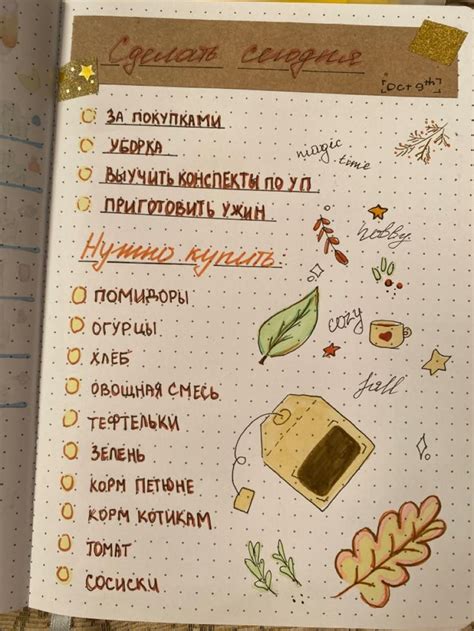 Сделать сегодня
ЗА ПОКУПКАМИ
УБОРКА
ВЫУЧИТЬ КОНСПЕКТЫ ПО УП
ПРИГОТОВИТЬ УЖИН
magic
time
hobby
Нужно купить:
ПОМИДОРЫ
ОГУРЦЫ
cozy
ХЛЕБ
ОВОЩНАЯ СМЕСЬ
fall
ТЕФТЕЛЬКИ
ЗЕЛЕНЬ
КОРМ ПЕТЮНЕ
КОРМ КОТИКАМ
ТОМАТ
СОСИСКИ